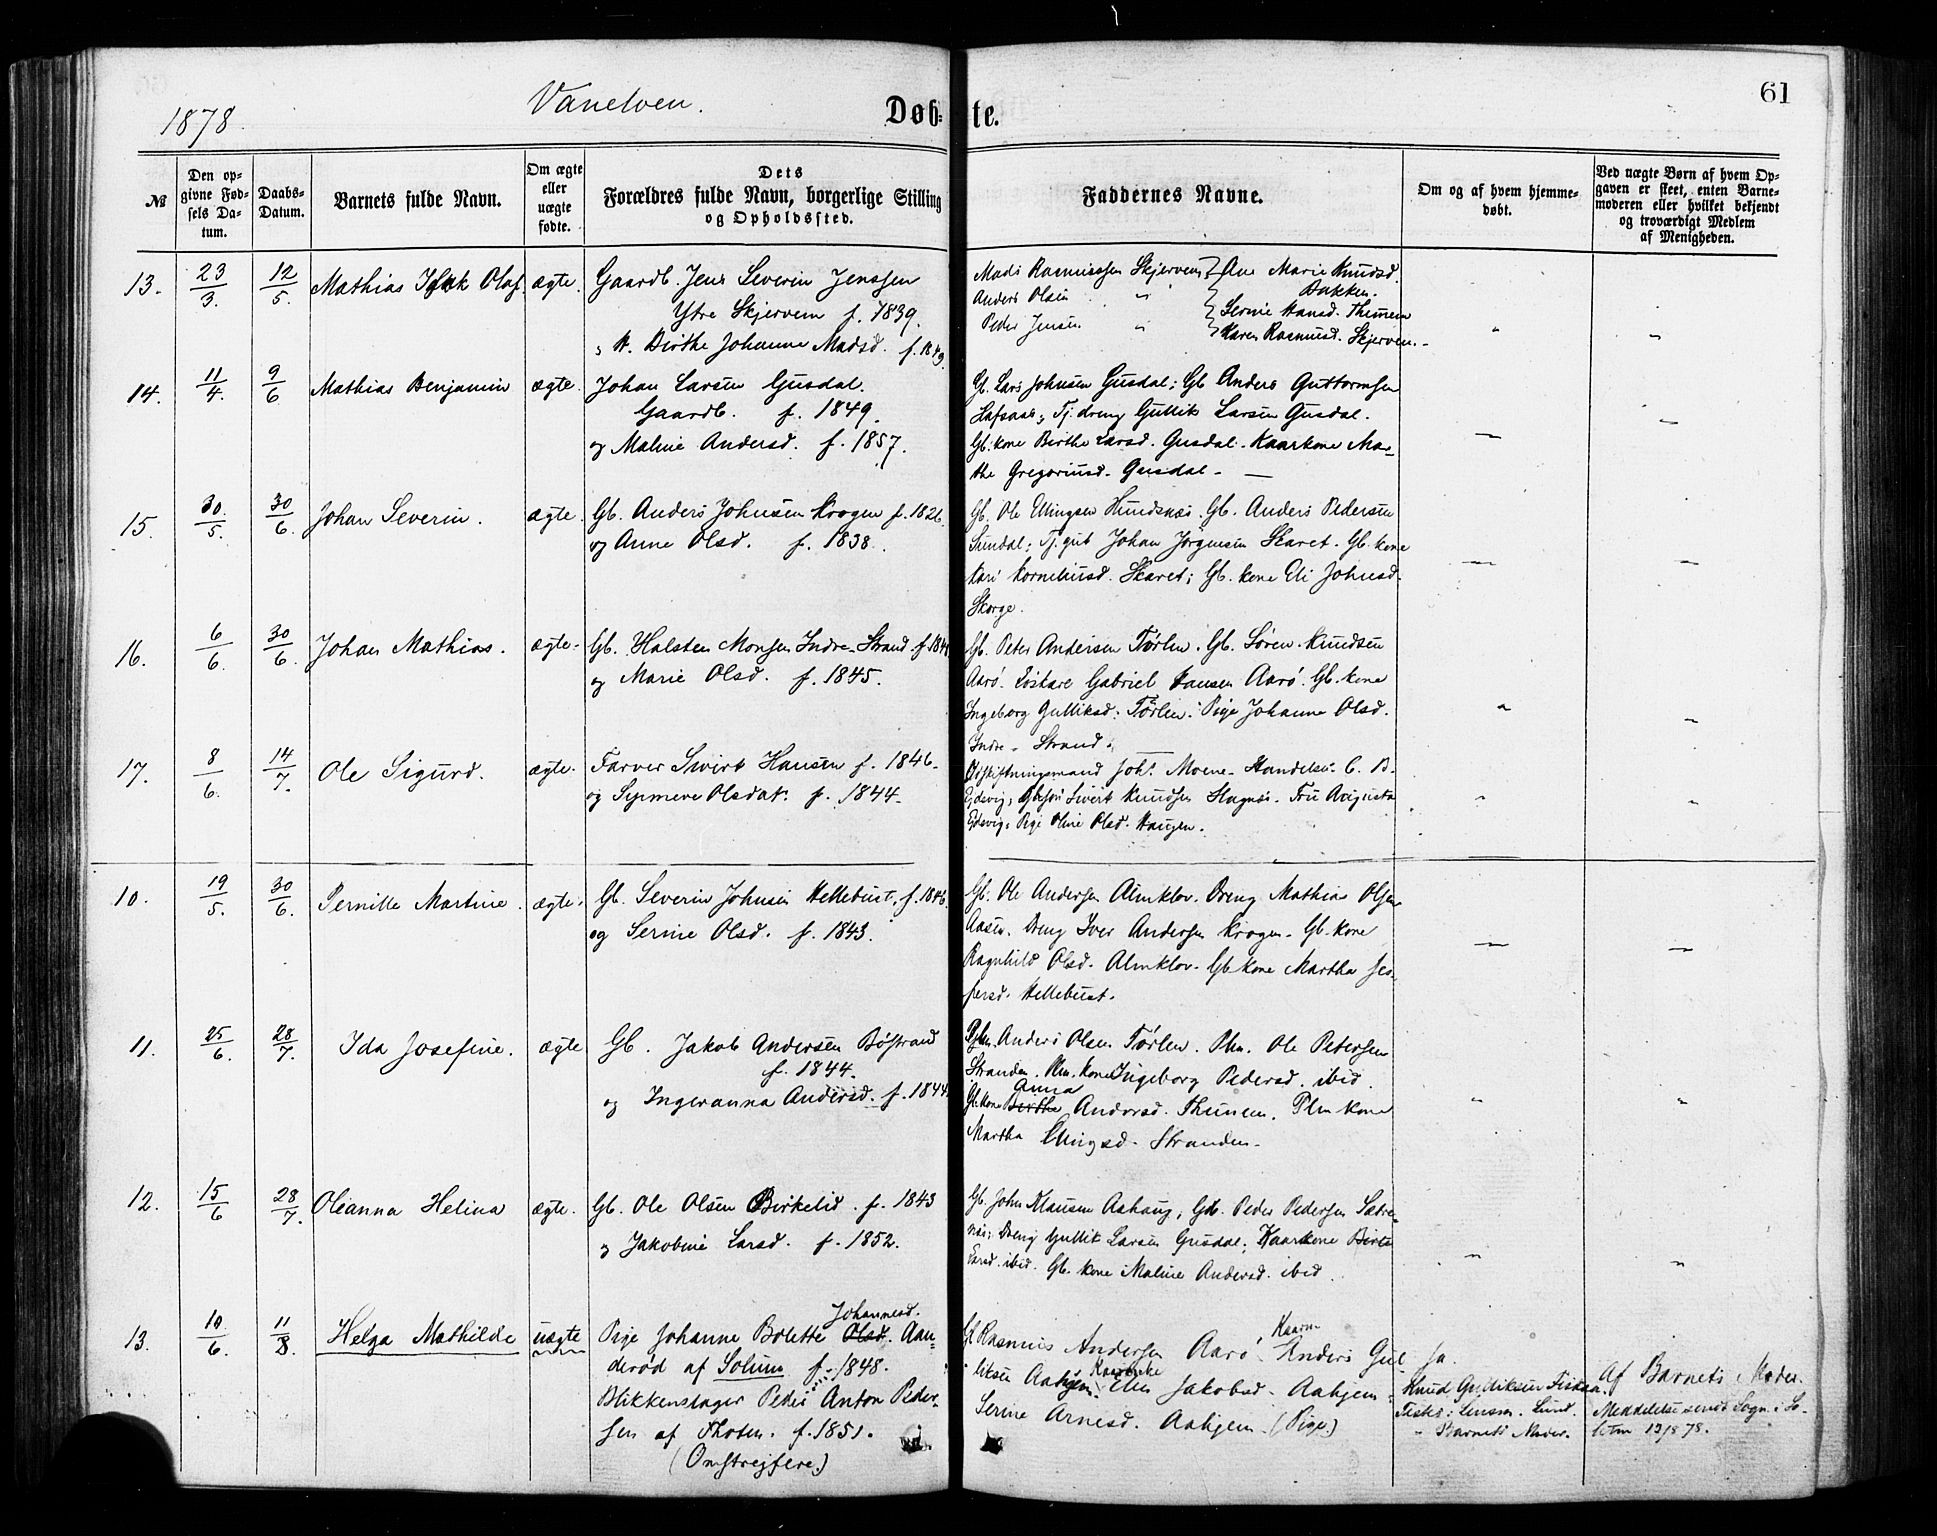 61
1878.
Vanelven.
Døbte.
№
Den opgivne Fødsels Datum.
Daabs-Datum.
Barnets fulde Navn.
Om ægte eller uægte fødte.
Dets Forældres fulde Navn, borgerlige Stilling og Opholdssted.
Faddernes Navne.
Om og af hvem hjemmedøbt.
Ved uægte Børn af hvem Opgaven er skeet, enten Barnemoderen eller hvilket bekjendt og troværdigt Medlem af Menigheden.
13. 23/3. 12/5 Mathias Olaf. ægte. Gaardb. Jens Severin Jenssen
Ytre Skjervem f. 1839.
K. Birthe Johanne Madsd. f. 1849.
Mads Rasmussen Skjerven } Ane Marie Knudsd.
Anders Olsen " Bakken.
Peder Jensen " } Serine Hansd. Thunem
Karen Rasmusd. Skjerven. " "
14. 11/4. 9/6 Mathias Benjamin ægte. Johan Larsen Gusdal.
Gaardb. f. 1849.
og Maline Andersd. f. 1857.
Gb. Lars Johnsen Gusdal; Gb Anders Guttormsen
Hafsaas; Tj. dreng Gullik Larsen Gusdal.
Gb. kone Birthe Larsd. Gusdal. Kaarkone Mar-
the Gregoriusd. Gusdal. —
15. 30/5. 30/6. Johan Severin. ægte. Gb. Anders Johnsen Krogen f. 1826.
og Anne Olsd. f. 1838.
Gb. Ole Ellingsen Hundsnæs. Gb. Anders Pedersen
Sundal; Tj. gut Johan Jørgensen Skaret. Gb. kone
Kari Korneliusd. Skaret; Gb. kone Eli Johnsd.
Skorge.
16. 6/6. 30/6. Johan Mathias. ægte. Gb. Halsten Monsen Indre-Strand f. 184
og Marie Olsd. f. 1845.
Gb. Peter Andersen Tørlen. Gb. Søren Knudsen
Aarø. Løskare Gabriel Hansen Aarø. Gb. kone
Ingeborg Gulliksd. Tørlen. Pige Johanne Olsd.
Indre-Strand.
17. 8/6. 14/7. Ole Sigurd. ægte. Farver Sivert Hansen f. 1846.
og Synneve Olsdat. f. 1844.
Udskiftningsmand Joh. Moene. Handelsm. C. B.
Eidsvig; Sivert Knudsen Hagnæs. Fru Augusta
Eidsvig; Pige Oline Olsd. Haugen.
10. 19/5. 30/6. Pernille Martine. ægte. Gb. Severin Johnsen Hellebust, f. 1846
og Serine Olsd. f. 1843.
Gb. Ole Andersen Almklov. Dreng Mathias Olsen
Aasen. Dreng Iver Andersen Krogen. Gb. kone
Ragnhild Olsd. Almklov. Gb kone Martha Jes-
persd. Hellebust.
11. 25/6. 28/7. Ida Josefine. ægte Gb. Jakob Andersen Bøstrand
f. 1844.
og Ingeranna Andersd. f. 1844.
Anders Olsen Tørlen. Plm. Ole Petersen
Stranden. Plm. kone Ingeborg Pedersd. ibid.
Anna
Gb. kone Birthe Andersd. Thunem. Plm kone
Martha Ellingsd. Stranden.
12. 15/6 28/7. Oleanna Helina ægte. Gb. Ole Olsen Birkelid. f. 1843
og Jakobine Larsd. f. 1852.
Gb. John Klausen Aahaug; Gb. Peder Pedersen Sætre-
næs; Dreng Gullik Larsen Gusdal; Kaarkone Birte
Larsd. ibid. Gb. kone Maline Andersd. ibid.
13. 10/6. 11/8. Helga Mathilde uægte
Johannesd.
Pige Johanne Bolette Olsd. Aan-
derød af Solum f. 1848.
Blikkenslager Peder Anton Peder-
sen af Thoten. f. 1851.
(Omstreifere.)
Gb Rasmus Andersen Aarø. Kaarm Anders Gul-
liksen Aahjem. Kaarenke Ellen Jakobsd. Aahjem
Serine Arnesd. Aahjem (Pige.)
Ja.
Knud Gulliksen Fiskaa.
Barnets Moder.
Af Barnets Moder.
Meddelelse sendt Sogn. i So-
lum 13/8 78.